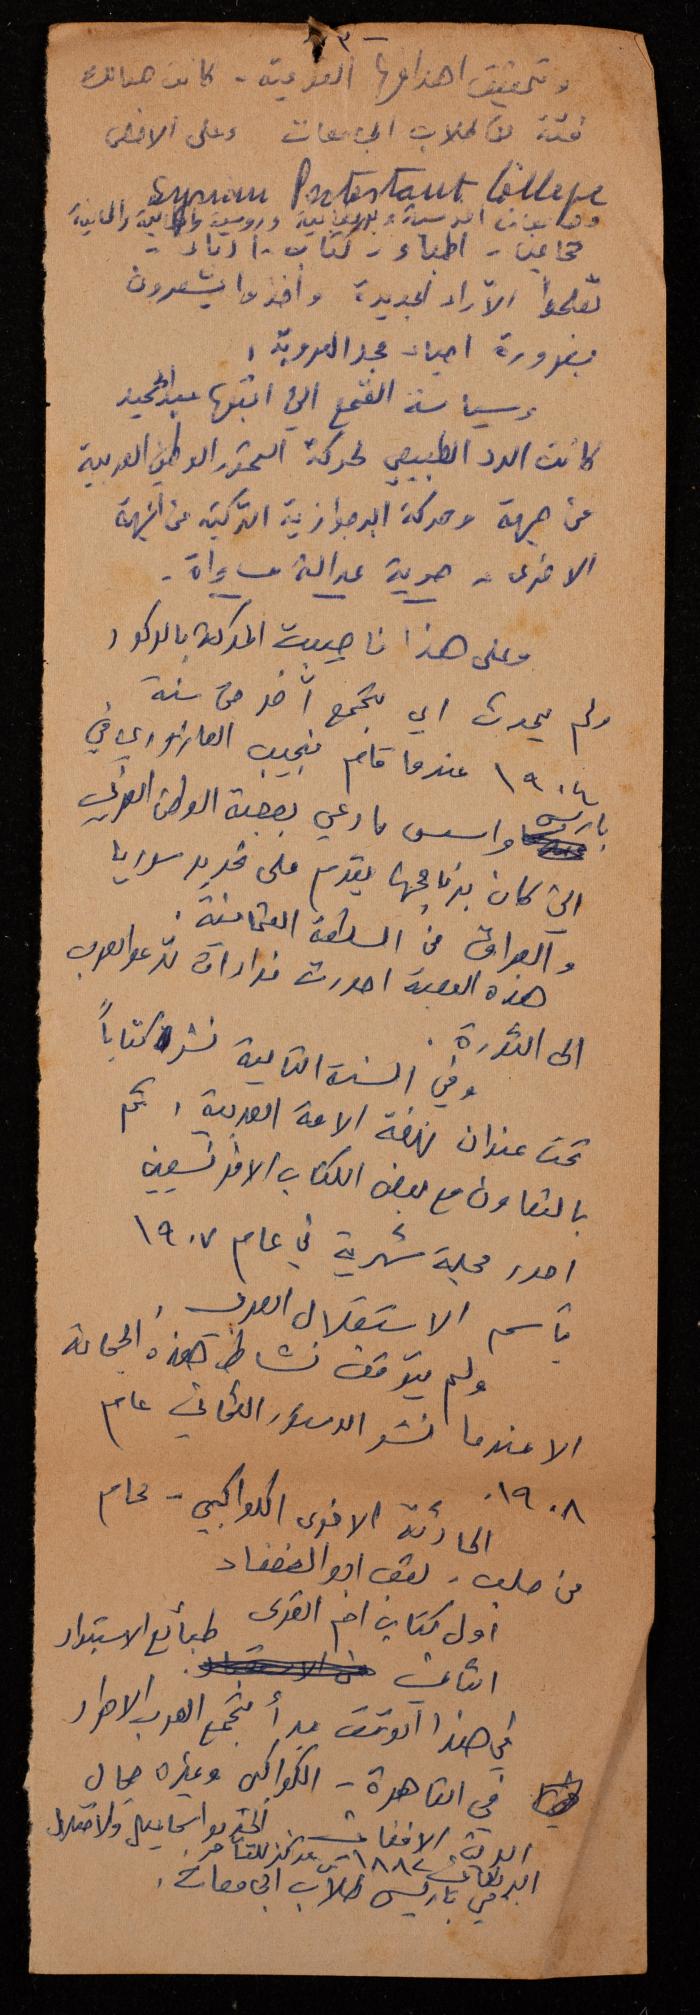 - ٣ -
وتحقيق اهدافها القومية - كانت هنالك
فئة من طلاب الجامعات وعلى الاخص
Syrian Protestant College
وجامعات افرنسية وبريطانية وروسية والمانية
محامين - اطباء - كتاب - ادباء -
تعلموا الآراء الجديدة واخذوا يشعرون
بضرورة احياء مجد العروبة ،
وسياسة القمع التي اتبعها عبد الحميد
كانت الرد الطبيعي لحركة التحرر الوطني العربية
من جهة وحركة البرجوازية التركية من الجهة
الاخرى - حرية عدالة مساواة -
وعلى هذا فاصيبت الحركة بالركود
ولم يحدث اي تجمع آخر حتى سنة
١٩٠٤ عندما قام نجيب العازوري في
باريس واسس ما دعي بعصبة الوطن العربي
التي كان برنامجها يقدم على تحرير سوريا
والعراق من السلطة العثمانية .
هذه العصبة اصدرت نداءات تدعو العرب
الى الثورة .
وفي السنة التالية نشر كتاباً
تحت عنوان نهضة الامة العربية ، ثم
بالتعاون مع بعض الكتاب الافرنسيين
اصدر مجلة شهرية في عام ١٩٠٧
باسم الاستقلال العربي
ولم يتوقف نشاط هذه الجماعة
الا عندما نشر الدستور العثماني عام
١٩٠٨ .
الحادثة الاخرى الكواكبي - محام
من حلب - لقب ابو الضعفاء
اول كتاب ام القرى طبائع الاستبداد
الثاني
في هذا الوقت بدأ تجمع العرب الاحرار
في القاهرة - الكواكبي وغيره جمال
الدين الافغاني الخديو اسماعيل والاحتلال
البريطاني ١٨٨٢ - مركز للتآمر .
وفي باريس طلاب الجامعات .